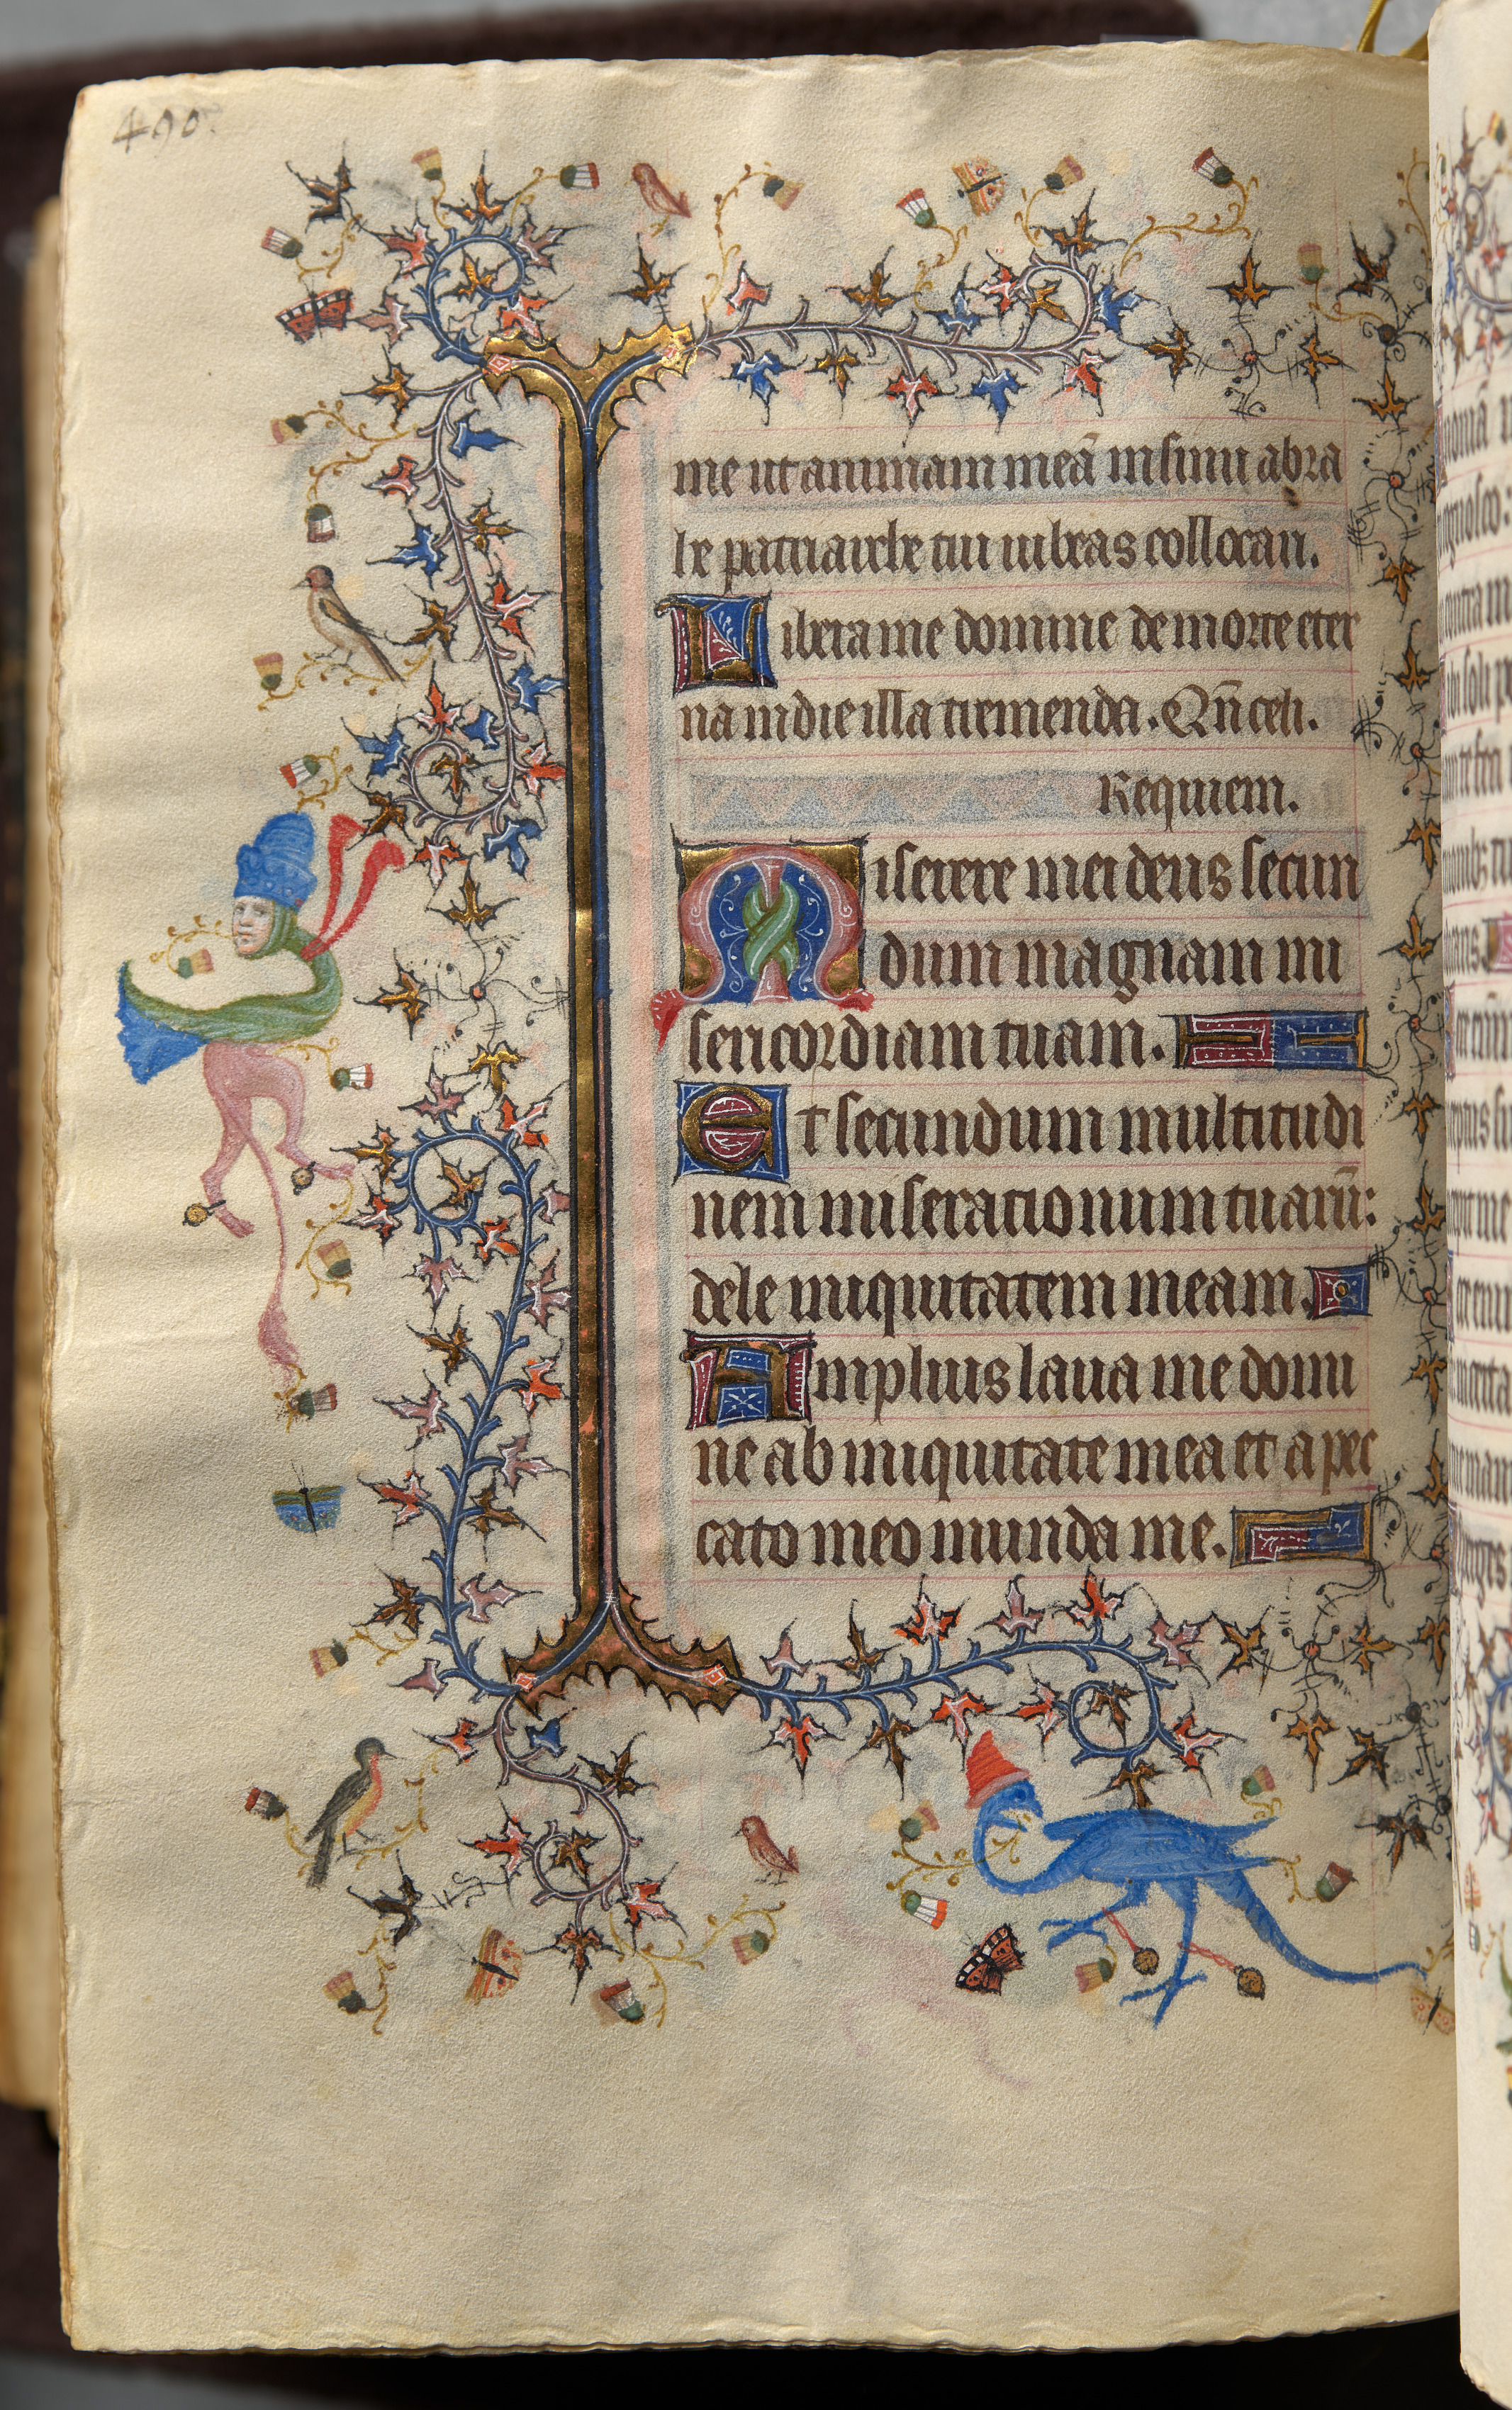 490.
me ut animam meā in sinu abra
he patriarche tui iubeas collocari.
Libera me domine de morte eter
na in die illa tremenda. Qn̄ celi.
Requiem.
Miserere mei deus secun
dum magnam mi
sericordiam tuam.
Et secundum multitudi
nem miserationum tuarū:
dele iniquitatem meam.
Amplius laua me domi
ne ab iniquitate mea et a pec
cato meo munda me.